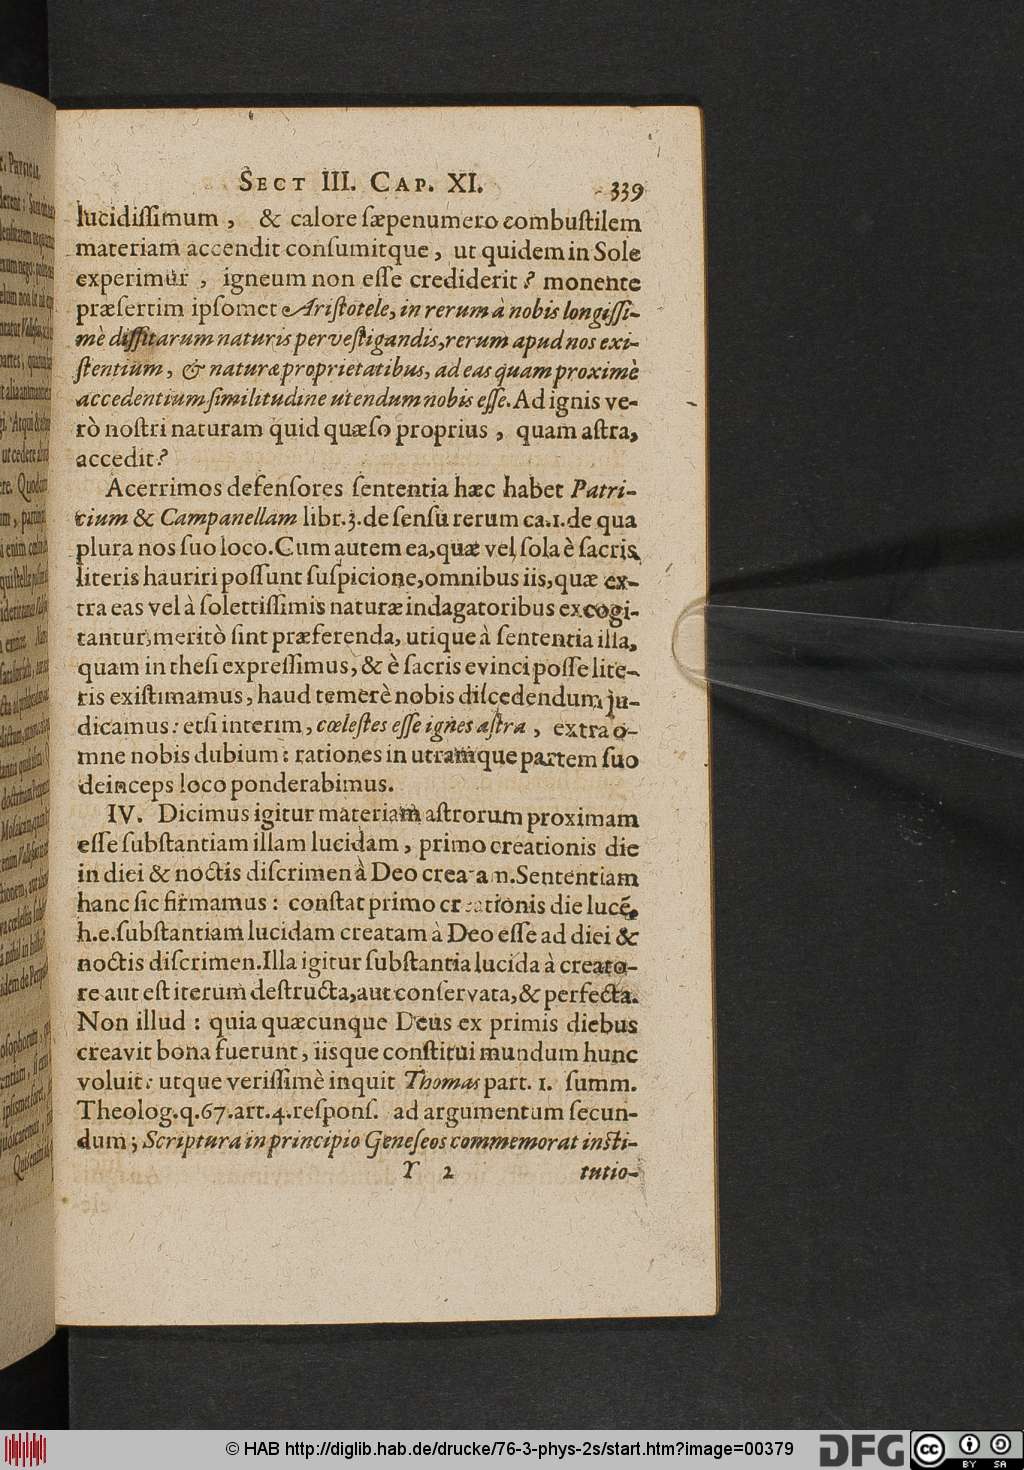 SECT III. CAP. XI. 339
lucidiſſimum, & calore ſæpenumero combuſtilem
materiam accendit conſumitque, ut quidem in Sole
experimur, igneum non eſſe crediderit? monente
præſertim ipſomet Ariſtotele, in rerum à nobis longiſſi-
mè diſſitarum naturis perveſtigandis, rerum apud nos exi-
ſtentium, & naturæ proprietatibus, ad eas quam proximè
accedentium ſimilitudine utendum nobis eſſe. Ad ignis ve-
rò noſtri naturam quid quæſo proprius, quam aſtra,
accedit?
Acerrimos defenſores ſententia hæc habet Patri-
cium & Campanellam libr. 3. de ſenſu rerum ca. 1. de qua
plura nos ſuo loco. Cum autem ea, quæ vel ſola è ſacris
literis hauriri poſſunt ſuſpicione, omnibus iis, quæ ex-
tra eas vel à ſolettiſſimis naturæ indagatoribus excogi-
tantur, meritò ſint præferenda, utique à ſententia illa,
quam in theſi expreſſimus, & è ſacris evinci poſſe lite-
ris exiſtimamus, haud temerè nobis diſcedendum ju-
dicamus: etſi interim, cœleſtes eſſe ignes aſtra, extra o-
mne nobis dubium: rationes in utramque partem ſuo
deinceps loco ponderabimus.
IV. Dicimus igitur materiam aſtrorum proximam
eſſe ſubſtantiam illam lucidam, primo creationis die
in diei & noctis diſcrimen à Deo creatam. Sententiam
hanc ſic firmamus: conſtat primo creationis die lucē,
h.e. ſubſtantiam lucidam creatam à Deo eſſe ad diei &
noctis diſcrimen. Illa igitur ſubſtantia lucida à creato-
re aut eſt iterum deſtructa, aut conſervata, & perfecta.
Non illud: quia quæcunque Deus ex primis diebus
creavit bona fuerunt, iisque conſtitui mundum hunc
voluit: utque veriſſimè inquit Thomas part. 1. ſumm.
Theolog. q. 67. art. 4. reſponſ. ad argumentum ſecun-
dum; Scriptura in principio Geneſeos commemorat inſti-
Y 2 tutio-
© HAB http://diglib.hab.de/drucke/76-3-phys-2s/start.htm?image=00379
DFG
cc
BY SA